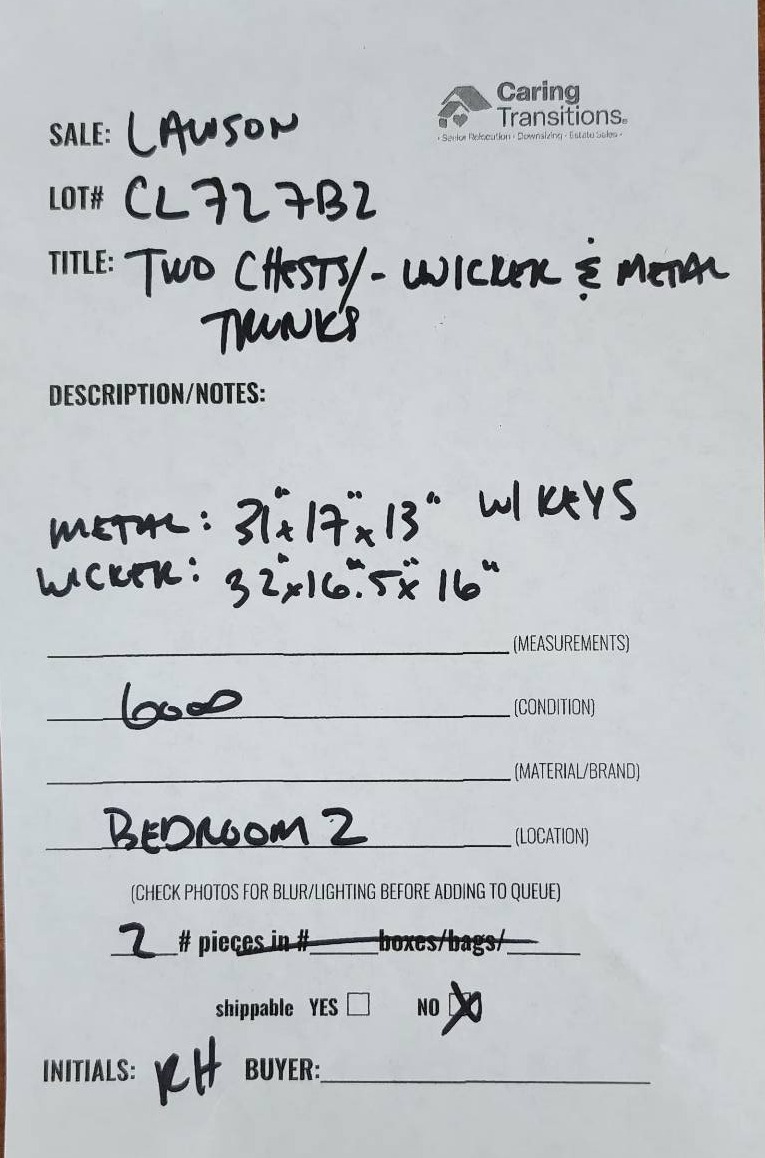 Caring
Transitions®
• Senior Relocation • Downsizing • Estate Sales •
SALE: LAWSON
LOT# CL727B2
TITLE: TWO CHESTS/- WICKER & METAL
TRUNKS
DESCRIPTION/NOTES:
METAL: 31" x 17" x 13" W/ KEYS
WICKER: 32" x 16".5" x 16"
(MEASUREMENTS)
GOOD (CONDITION)
(MATERIAL/BRAND)
BEDROOM 2 (LOCATION)
(CHECK PHOTOS FOR BLUR/LIGHTING BEFORE ADDING TO QUEUE)
2 # pieces in #______boxes/bags/______
shippable YES ☐ NO ☒
INITIALS: RH BUYER: